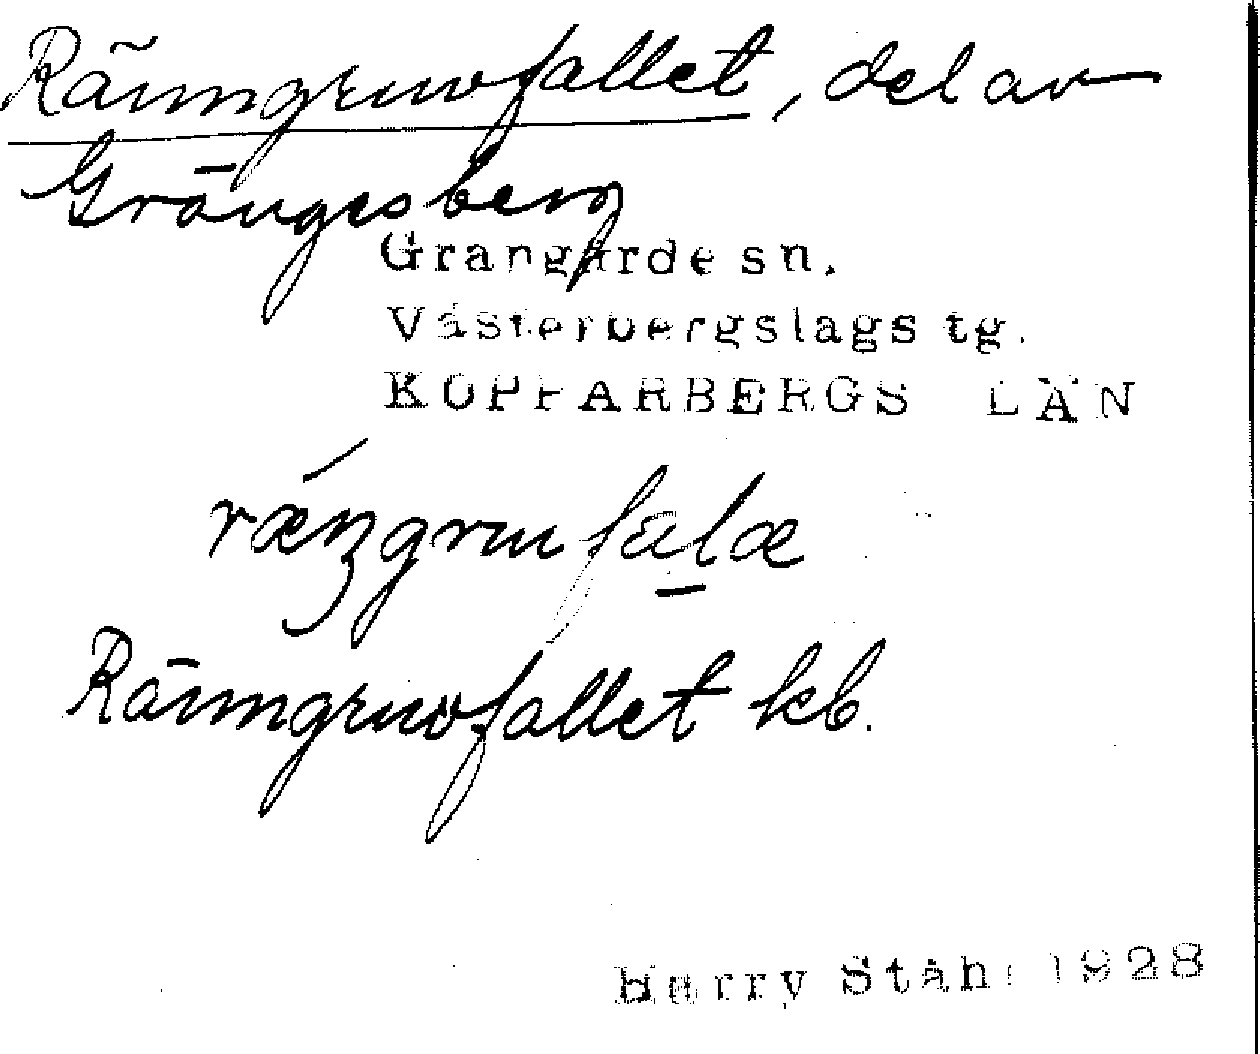 Rämngruvfallet, del av
Grängesberg
Grangärde sn.
Västerbergslags tg.
KOPPARBERGS LÄN
Rämngruvfallet kb.
Harry Ståhl 1928